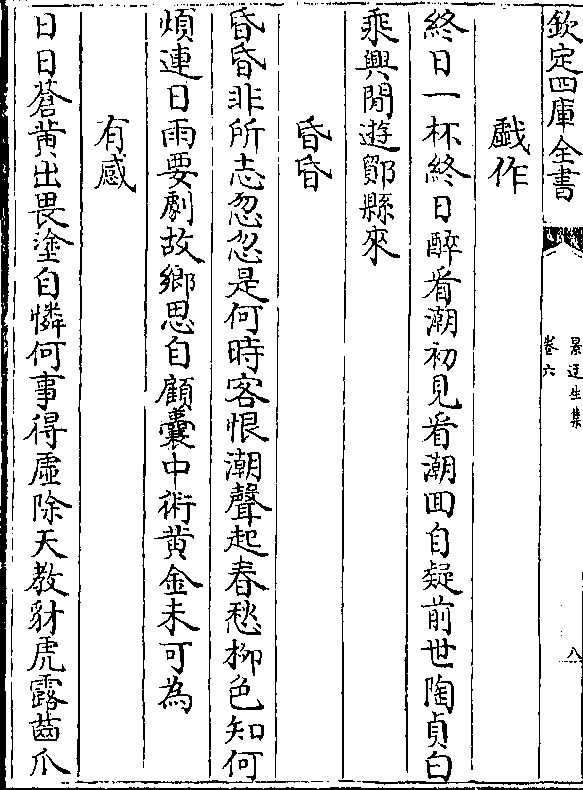 欽定四庫全書
景迂生集
卷六
八
戱作
終日一杯終日醉看潮初見看潮回自疑前世陶貞白
乘興閒遊鄮縣來
昏昏
昏昏非所志忽忽是何時客恨潮聲起春愁栁色知何
煩連日雨要劇故鄉思自顧囊中術黄金未可為
有感
日日蒼黄出畏塗自憐何事得虛除天教豺虎露齒爪